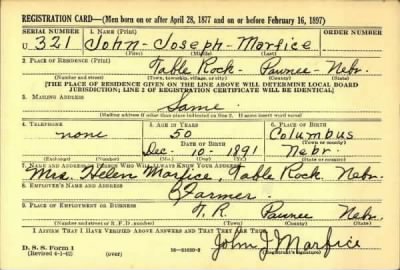 REGISTRATION CARD—(Men born on or after April 28, 1877 and on or before February 16, 1897)
SERIAL NUMBER 1. NAME (Print) ORDER NUMBER
U 321 John - Joseph - Marfice
(First) (Middle) (Last)
2. PLACE OF RESIDENCE (Print)
Table Rock - Pawnee - Nebr.
(Number and street) (Town, township, village, or city) (County) (State)
[THE PLACE OF RESIDENCE GIVEN ON THE LINE ABOVE WILL DETERMINE LOCAL BOARD
JURISDICTION; LINE 2 OF REGISTRATION CERTIFICATE WILL BE IDENTICAL]
3. MAILING ADDRESS
Same
[Mailing address if other than place indicated on line 2. If same insert word same]
4. TELEPHONE 5. AGE IN YEARS 6. PLACE OF BIRTH
none 50 Columbus
DATE OF BIRTH (Town or county)
Dec. 10 - 1891 Nebr.
(Exchange) (Number) (Mo.) (Day) (Yr.) (State or country)
7. NAME AND ADDRESS OF PERSON WHO WILL ALWAYS KNOW YOUR ADDRESS
Mrs. Helen Marfice, Table Rock Nebr.
8. EMPLOYER'S NAME AND ADDRESS
Farmer
9. PLACE OF EMPLOYMENT OR BUSINESS
T. R. Pawnee Nebr.
(Number and street or R. F. D. number) (Town) (County) (State)
I AFFIRM THAT I HAVE VERIFIED ABOVE ANSWERS AND THAT THEY ARE TRUE.
D. S. S. Form 1
(Revised 4-1-42) (over)
John J Marfice
(Registrant's signature)